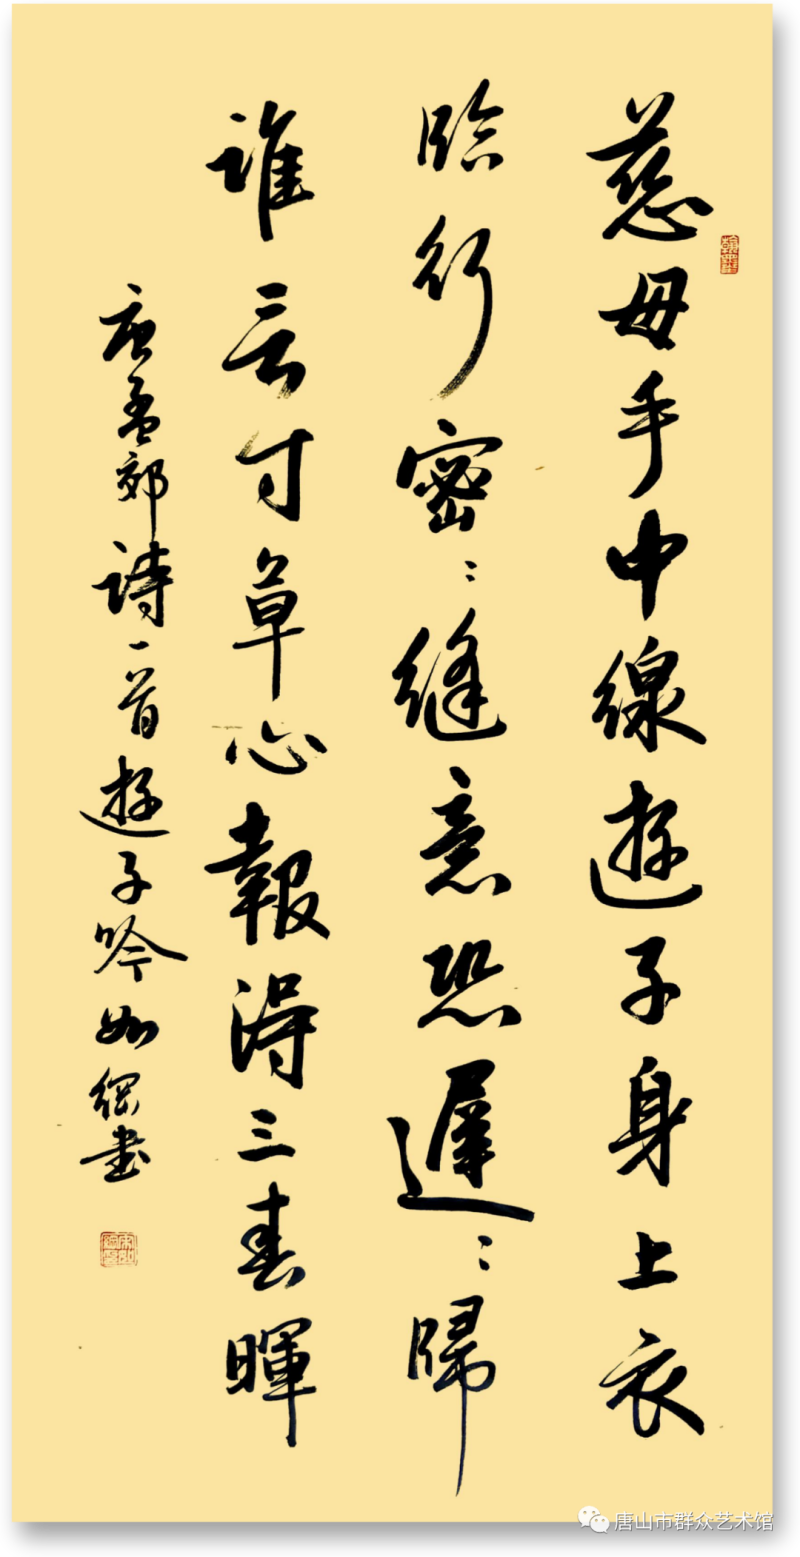 慈母手中線遊子身上衣
臨行密〻縫意恐遲〻歸
誰言寸草心報得三春暉
唐孟郊詩一首遊子吟如綱書
唐山市群众艺术馆